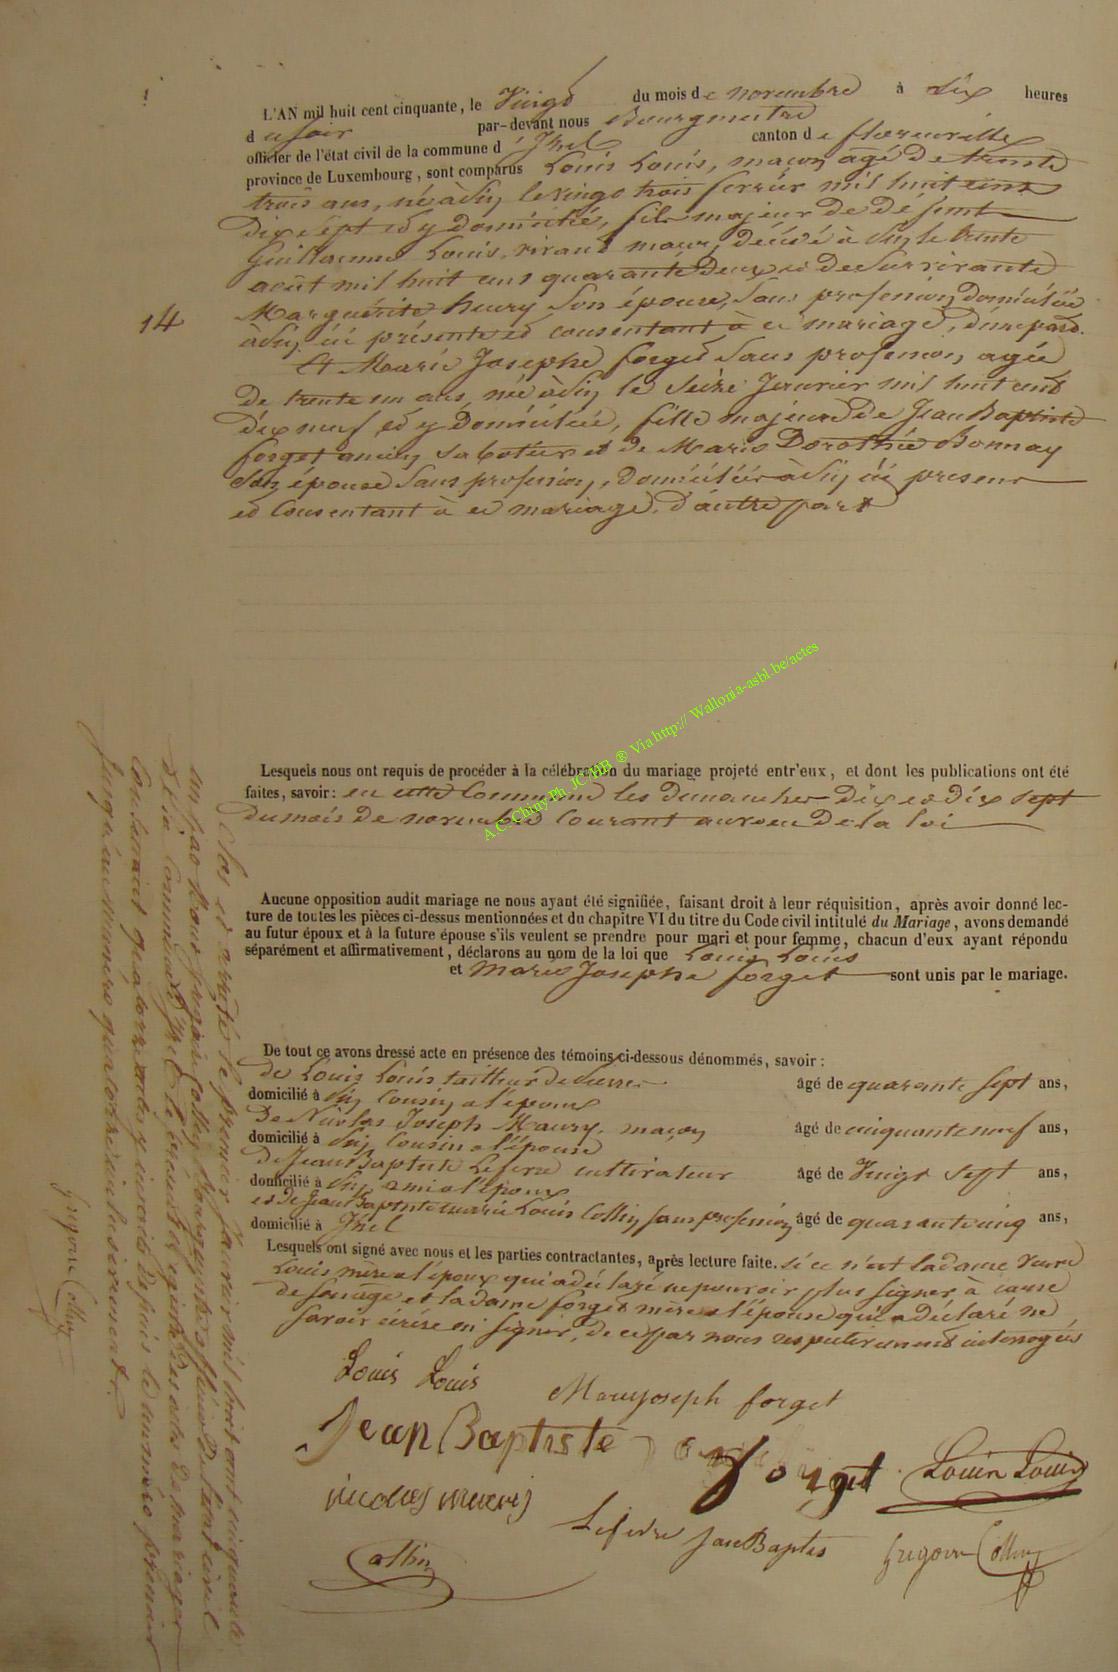 L'AN mil huit cent cinquante, le Vingt du mois de novembre à six heures
du soir par-devant nous Bourgmestre
officier de l'état civil de la commune d'Izel canton de florenville
province de Luxembourg, sont comparus Louis Louis, maçon agé de trente
trois ans, né à le vingt trois fevrier mil huit cent
dix sept et y domicilié, fils majeur de défunt
Guillaume Louis, vivant maçon, décédé à le trente
août mil huit cent quarante deux et de survivante
Marguérite henry son épouse, sans profession domiciliée
à ici présente et consentant à ce mariage, d'une part.
14
Et Marie Josephe forget sans profession, agée
de trente un ans, née à le seize Janvier mil huit cent
dix neuf et y domiciliée, fille majeure de Jean Baptiste
forget ancien sabotier et de Marie Dorothée Bonnay
son épouse sans profession, domiciliés à ici présens
et Consentant à ce mariage, d'autre part
A.C. Chiny Ph. JC/HB ® Via http:// Wallonia-asbl.be/actes
Lesquels nous ont requis de procéder à la célébration du mariage projeté entr'eux, et dont les publications ont été
faites, savoir: en cette Commune les dimanches dix et dix sept
du mois de novembre courant au voeu de la loi
Aucune opposition audit mariage ne nous ayant été signifiée, faisant droit à leur réquisition, après avoir donné lec-
ture de toutes les pièces ci-dessus mentionnées et du chapitre VI du titre du Code civil intitulé du Mariage, avons demandé
au futur époux et à la future épouse s'ils veulent se prendre pour mari et pour femme, chacun d'eux ayant répondu
séparément et affirmativement, déclarons au nom de la loi que Louis Louis
et Marie Josephe forget sont unis par le mariage.
De tout ce avons dressé acte en présence des témoins ci-dessous dénommés, savoir:
de Louis Louis tailleur de pierres âgé de quarante sept ans,
domicilié à cousin a l'époux
de Nicolas Joseph Maury, maçon âgé de cinquante neuf ans,
domicilié à cousin a l'épouse
de Jean Baptiste Lefevre cultivateur âgé de Vingt Sept ans,
domicilié à ami a l'époux
et de Jean Baptiste marie Louis Collin sans profession âgé de quarante cinq ans,
domicilié à Izel
Lesquels ont signé avec nous et les parties contractantes, après lecture faite. si ce n'est la dame veuve
Louis mère a l'époux qui a déclaré ne pouvoir plus signer à cause
de son age et la dame forget mère a l'épouse qui a déclaré ne
savoir écrire ni signer, de ce par nous respectivement interrogées
Louis Louis
Marie joseph forget
Jean Baptiste forget
Louis Louis
nicolas maury
Lefevre Jean Baptis
Grégoire Collin
Collin
Clos et arrêté le premier Janvier mil huit cent cinquante
un par Nous Grégoire Collin Bourgmestre officier de l'état civil
de la Commune d'Izel le présent registre des actes de mariages
Contenant quatorze actes y inscrits depuis le numéro premier
jusqu'au numéro quatorze inclusivement.
Grégoire Collin